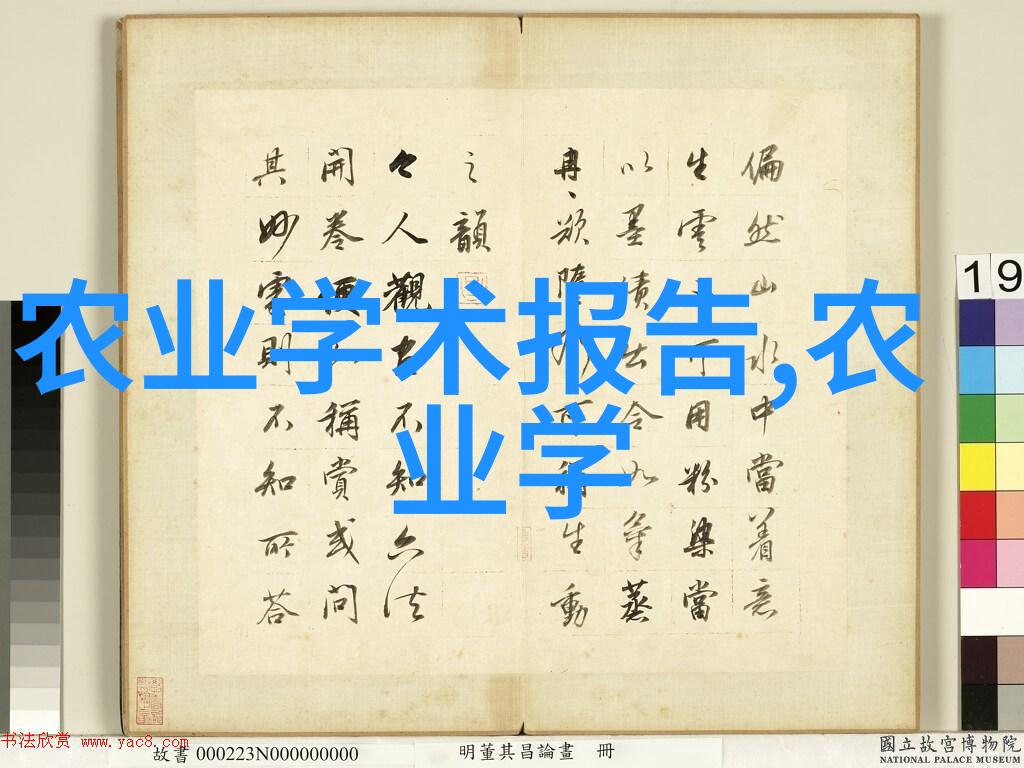 农业学术报告,农
业学
偏然山水中當着意
生雲不可用粉染當
以墨漬出令如氣蒸
冉、欲墮乃可稱生動
之韻
人觀不知六法
開卷便稱賞或問
其妙處則不知所答
19
书法欣赏 www.yac8.com
故書 000223N000000000
明董其昌論畫 冊
國立故宮博物院
NATIONAL PALACE MUSEUM